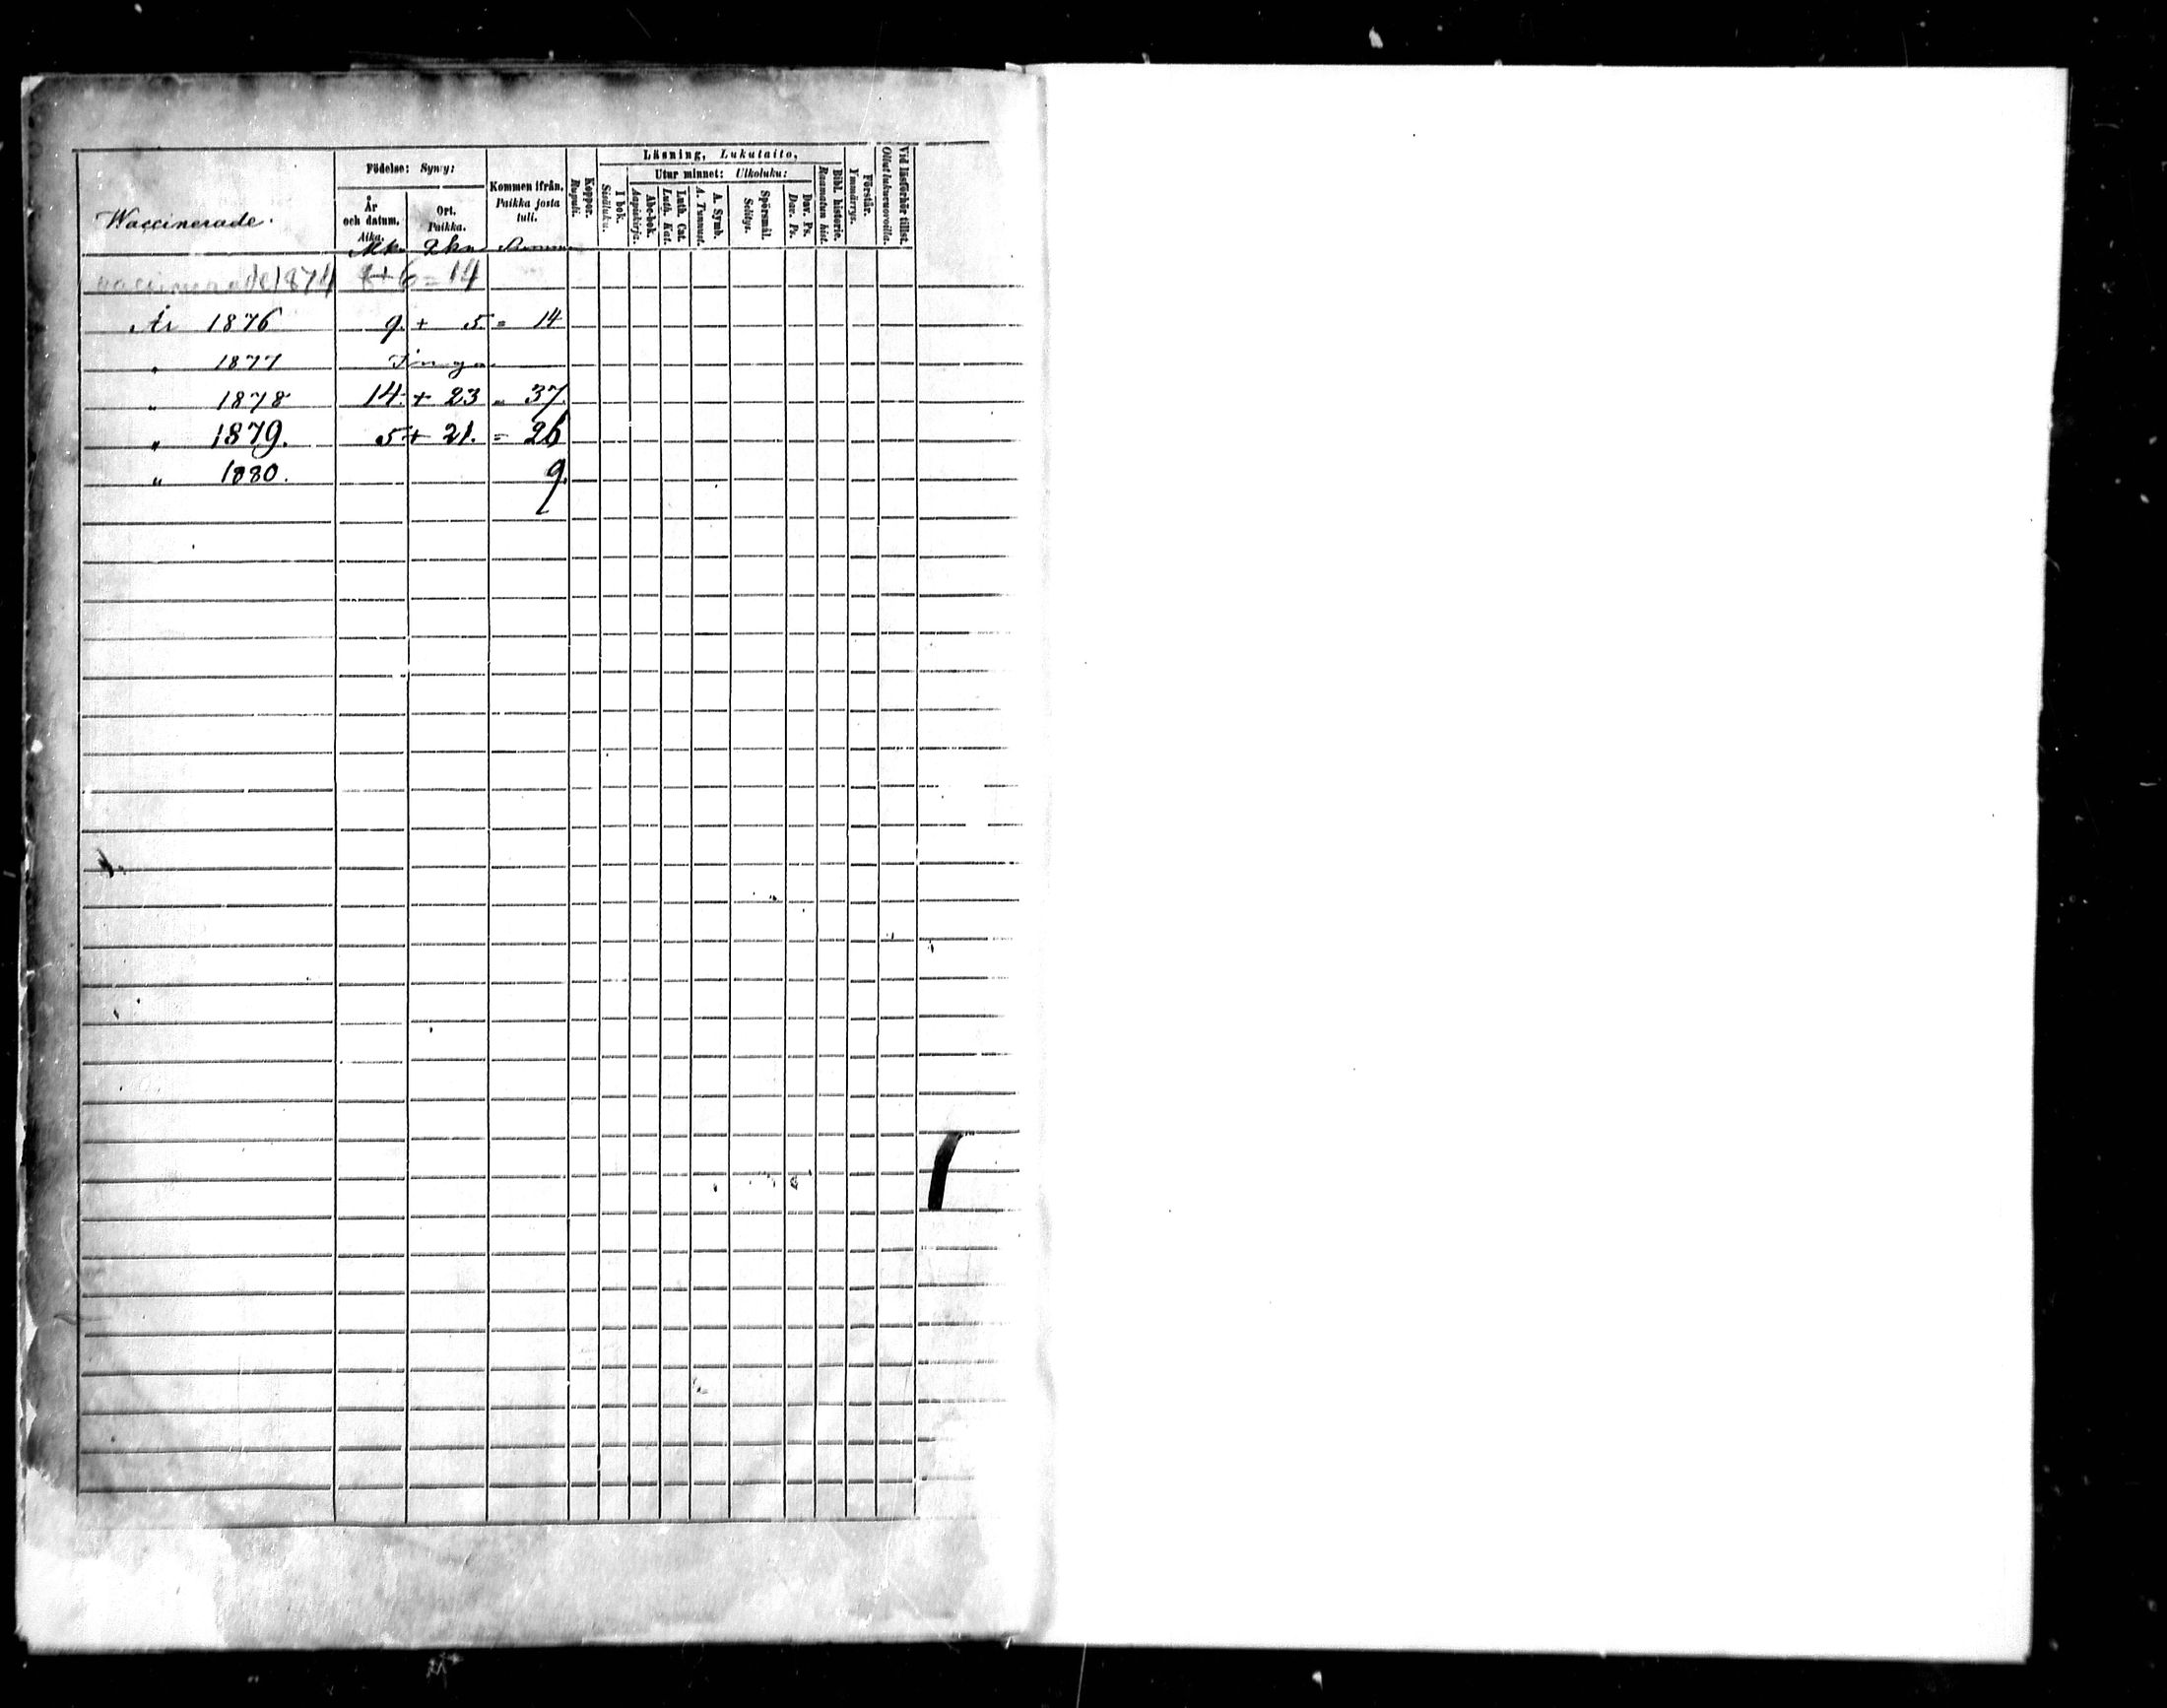 Waccinerade.
Födelse: Synty:
År och datum. Aika.
Ort. Paikka.
Kommen ifrån. Paikka josta tuli.
Koppor. Rupuli.
Läsning, Lukutaito,
I bok. Sisäluku.
Utur minnet: Ulkoluku:
Abc-bok. Aapiskirja.
Luth. Cat. Luth. Kat.
A. Symb. A. Tunnust.
Spörsmål. Selitys.
Dav. Ps. Dav. Ps.
Bibl. historie. Raamatun hist.
Förstår. Ymmärrys.
Vid läsförhör tillst. Ollut lukuwuoroilla.
Mkn Qkn Summa
Waccinerade 1874 8+6=14
År 1876 9. + 5. = 14
" 1877 Inga
" 1878 14. + 23 = 37.
" 1879. 5 + 21. = 26
" 1880. 9.